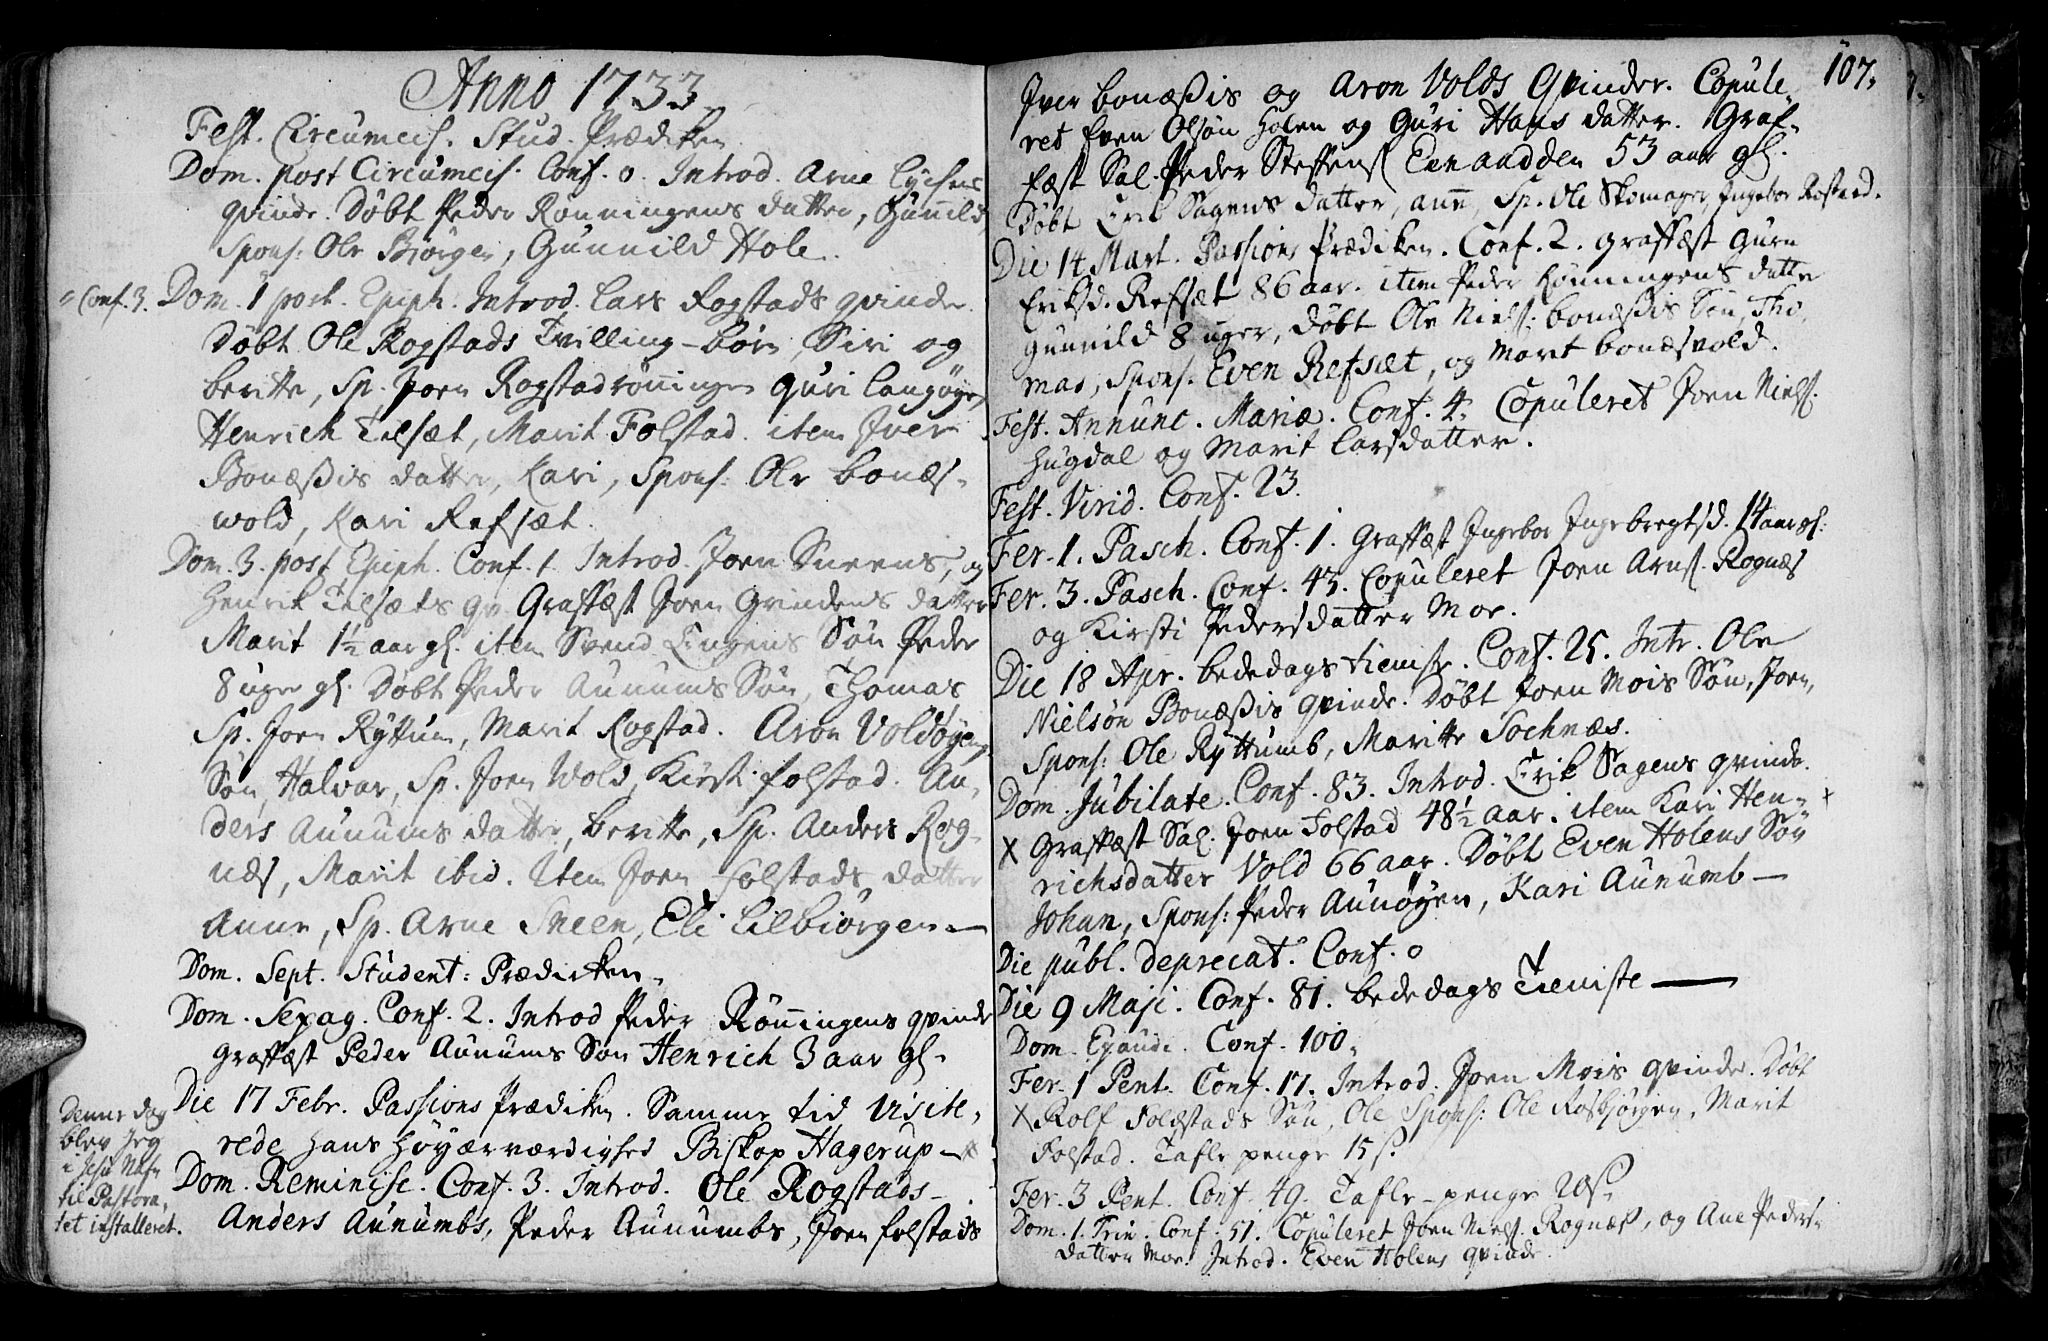 Anno 1733.
Fest. Circumcis. Stud. Prædiken
Dom. post Circumcis. Conf. 0. Introd. Arne
qvinde. Døbt Peder Rønningens datter, Gunnild,
Spons: Ole Biørgen, Gunnild Hole.
Conf. 3. Dom. 1 post. Epiph. Introd. Lars Rogstads qvinde.
Døbt Ole Rogstads Tvilling-børn, Siri og
beritte, Sp. Joen Rogstadrønningen Guri Langøyen,
Henrich Tilsæt, Marit Folstad. item Iver
Bonæssis datter, Kari, Spons: Ole bonæs-
wold, Kari Refsæt.
Dom. 3. post Epiph. Conf. 1. Introd. Joen Sneens, og
Henrik Tilsæts qv. Graffæst Joen Grindens datter
Marit 1½ aar gl. item Svend Engens Søn Peder
8 uger gl. Døbt Peder Aunums Søn, Thomas
Sp. Joen Ryttum, Marit Rogstad. Aron Voldøyens
Søn, Halvar, Sp. Joen Wold, Kirsti folstad. An-
ders Aunums datter, beritte, Sp. Anders Rog-
næs, Marit ibid. Item Joen Folstads datter
Anne, Sp. Arne Sneen, Eli Lilbiørgen —
Dom. Sept. Student: Prædicken.
Dom. Sexag. Conf. 2. Introd Peder Rønningens qvinde
Graffæst Peder Aunums Søn Henrich 3 aar gl.
Die 17 Febr. Passions Prædiken. Samme tid visite-
rede Hans Høyærværdighed Biskop Hagerup —
Denne dag
blev Jeg
i Jesu Nafn
til Pastora-
tet installeret.
Dom. Reminisc. Conf. 3. Introd. Ole Rogstads-
Anders Aunumbs, Peder Aunumbs, Joen folstads
107.
Iver bonæssis og Aron Volds Qvinder. Copule-
ret Even Olsøn Holen og Guri Hans datter. Graf-
fæst Sal. Peder Steffens 53 aar gl.
Døbt Erik Sagens datter, ann, Sp. Ole Skomager, Ingebor Rostad.
Die 14 Mart. Passions Prædiken. Conf. 2. Graffæst Guru
Eriksd. Refsæt 86 aar. item Peder Rønningens datter
Gunnild 8 uger, døbt Ole Niels. bonæssis Søn, Tho-
mas, Spons. Even Refsæt, og Marit bonæsvold.
Fest. Annunc. Mariæ. Conf. 4. Copuleret Joen Niels.
Hugdal og Marit Larsdatter.
Fest. Virid. Conf. 23.
Fer. 1. Pasch. Conf. 1. Graffæst Ingebor Ingebregtsd. 14 aar gl.
Fer. 3. Pasch. Conf. 43. Copuleret Joen Arns. Rognæs
og Kirsti Pedersdatter Moe.
Die 18 Apr. bededags tieniste. Conf. 25. Intr. Ole
Nielsøn Bonæssis qvinde. Døbt Joen Mois Søn, Joen,
Spons: Ole Ryttumb, Maritte Sochnæs.
Dom. Jubilate. Conf. 83. Introd. Erik Sagens qvinde.
X Graffæst Sal. Joen Folstad 48½ aar. item Kari Hen-
richsdatter Vold 66 aar. Døbt Even Holens Søn
Johan, Spons: Peder Aunøyen, Kari Aunumb —
Die publ. deprecat. Conf. 0
Die 9 Maji. Conf. 81. bededags Tieniste —
Dom. Exaudi. Conf. 100.
Fer. 1 Pent. Conf. 17. Introd. Joen Mois qvinde. Døbt
X Rolf Folstads Søn, Ole Spons: Ole Rosbjørgen, Marit
Folstad. Tafle penge 15 s.
Fer. 3 Pent. Conf. 49. Tafle-penge 20 s.
Dom. 1. Trin. Conf. 51. Copuleret Joen Niels. Rognæs, og Ane Peders-
datter Moe. Introd. Even Holens qvinde.